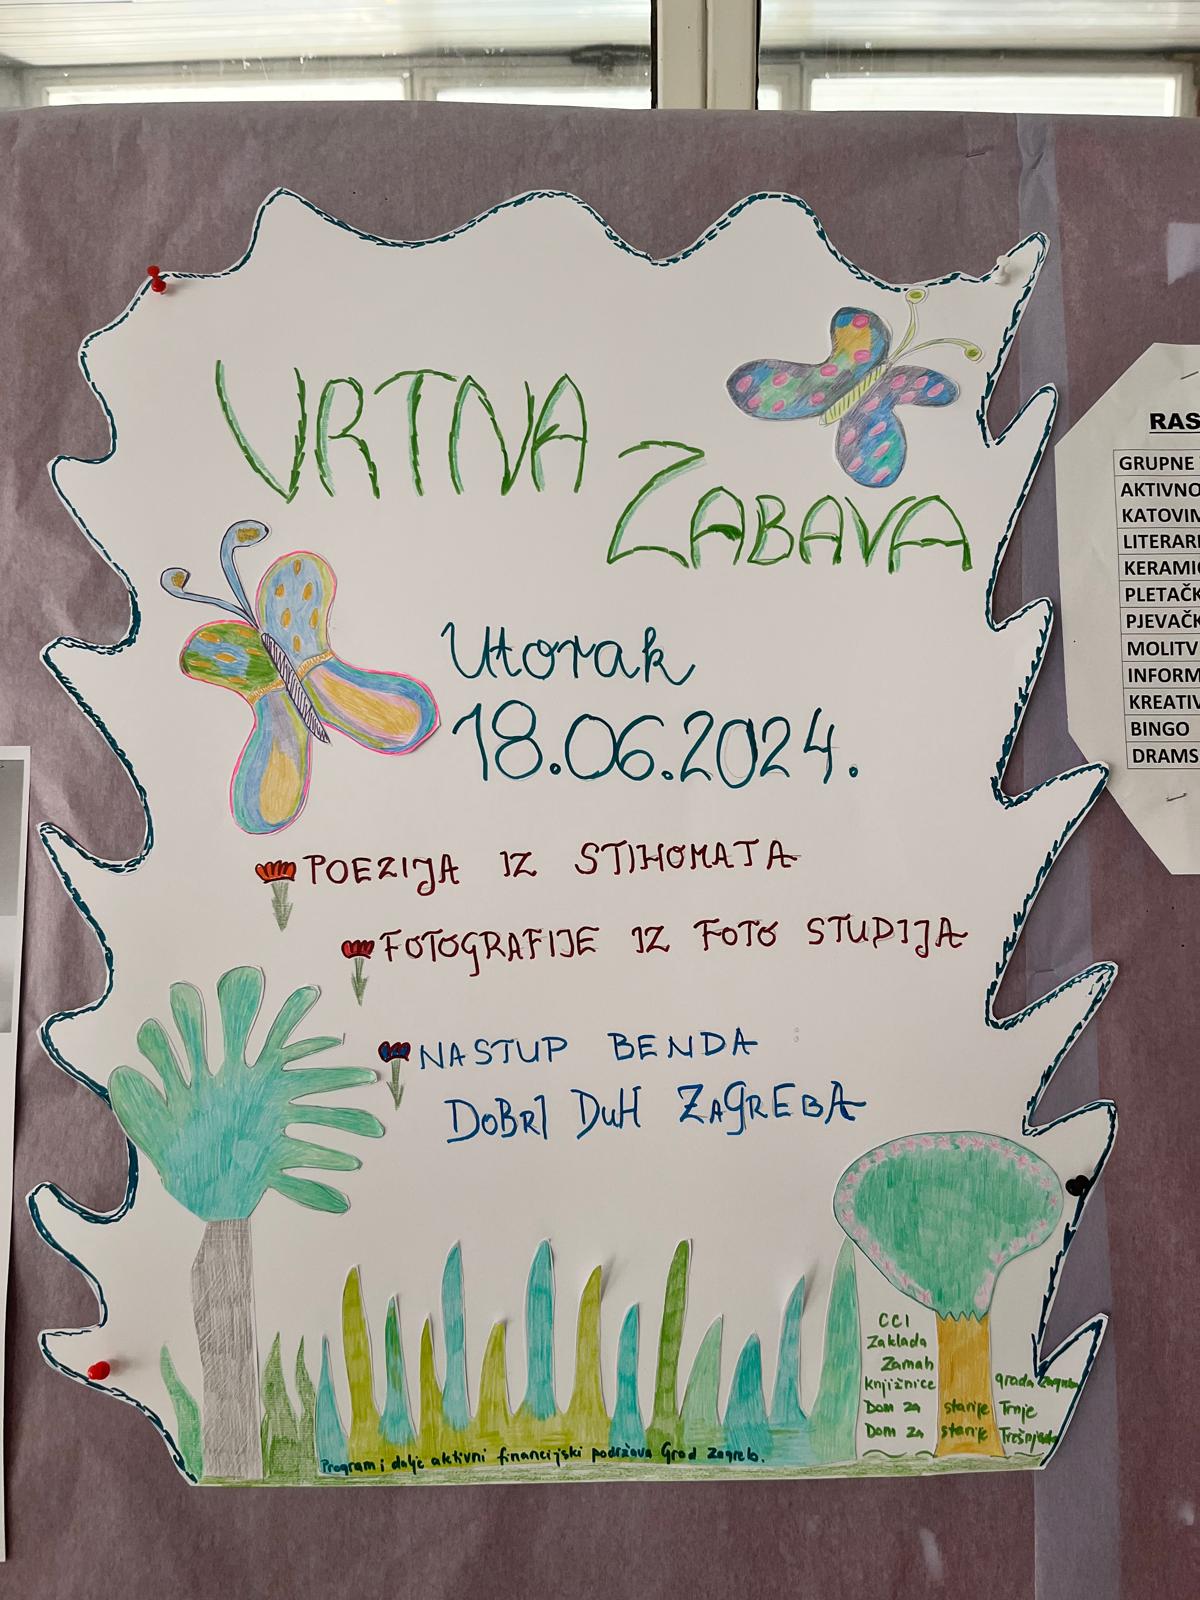 VRTNA
ZABAVA
Utorak
18.06.2024.
POEZIJA IZ STIHOMATA
FOTOGRAFIJE IZ FOTO STUDIJA
NASTUP BENDA
DOBRI DUH ZAGREBA
CCI
Zaklada
Zamah
knjižnice grada Zagreba
Dom za starije Trnje
Dom za starije Trešnjevka
Program i dalje aktivni financijski podržava Grad Zagreb.
RAS
GRUPNE
AKTIVNO
KATOVIM
LITERAR
KERAMIČ
PLETAČK
PJEVAČK
MOLITV
INFORM
KREATIV
BINGO
DRAMS